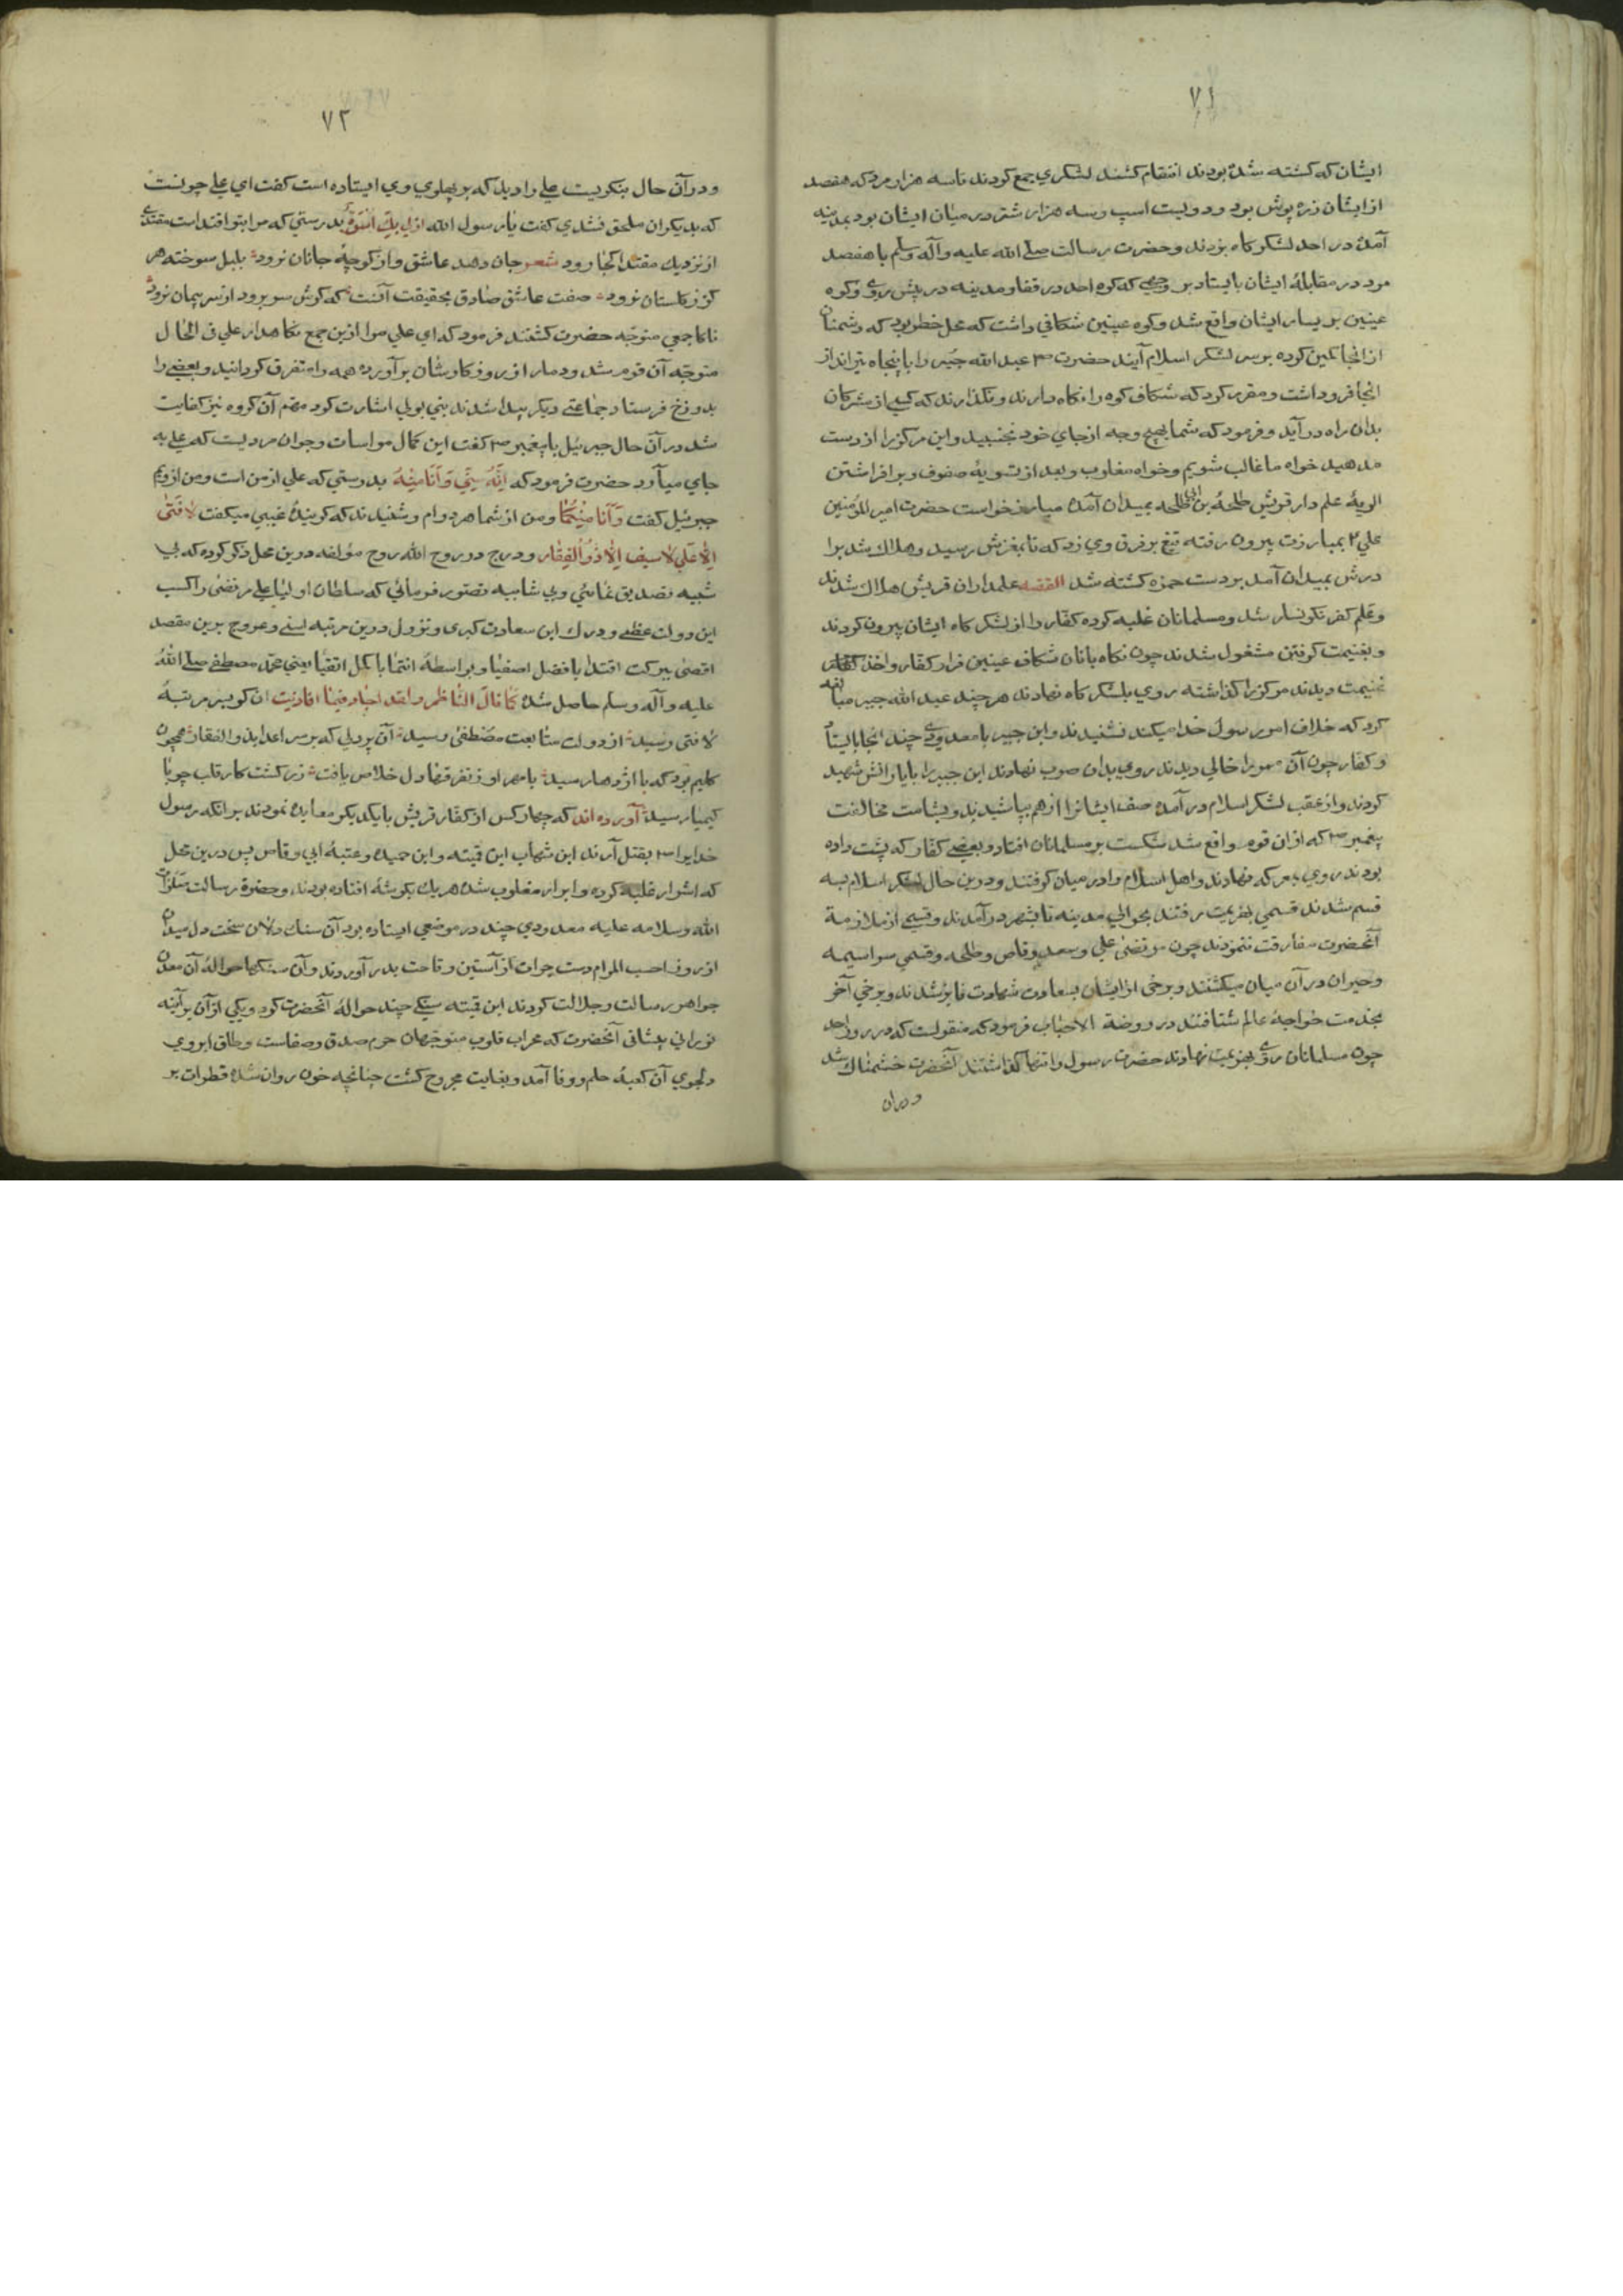 ۷۱
ایشان که کشته شده بودند انتقام کشند لشکری جمع کودند تاسه هزار مرد که هفصد
از ایشان زره پوش بود و دویست اسپ و سه هزار شتر در میان ایشان بود بمدینه
آمده در احد لشکر کاه بودند و حضرت رسالت صلی الله علیه وآله وسلم با هفصد
مرد در مقابلهٔ ایشان بایستاد بر وجهی که کوه احد در قفا و مدینه در پیش روی و کوه
عینین بر یسار ایشان واقع شد و کوه عینین شکافی داشت که محل خطر بود که دشمنان
از انجا کمین کرده بر سر لشکر اسلام آیند حضرت عبد الله جبیر را با پنجاه تیرانداز
انجا فرو داشت و مقرر کرد که شکاف کوه را نکاه دارند و نکذارند که کسی از مشرکان
بدان راه در آید و فرمود که شما بهیچ وجه از جای خود نجنبید و این مرکز را از دست
مدهید خواه ما غالب شویم و خواه مغلوب و بعد از تسویهٔ صفوف و بر افراشتن
الویهٔ علم دار قریش طلحهٔ بن ابی طلحه بمیدان آمده مبارز خواست حضرت امیر المؤمنین
علی بمبارزت بیرون رفته تیغ بر فرق وی زد که تا بمغزش رسید و هلاک شد برا
درش بمیدان آمد بر دست حمزه کشته شد القصه علمداران قریش هلاک شدند
وعلم کفر نکونسار شد و مسلمانان غلبه کرده کفار را از لشکر کاه ایشان بیرون کردند
و بغنیمت کرفتن مشغول شدند چون نکاه بانان شکاف عینین فرار کفار و اخذ
غنیمت دیدند مرکز را کذاشته روی بلشکر کاه نهادند هر چند عبد الله جبیر مبالغه
کرد که خلاف امر رسول خدا میکند نشنیدند و ابن جبیر با معدودی چند انجا بایستاد
و کفار چون آن ممر را خالی دیدند روی بدان صوب نهادند ابن جبیر را با یارانش شهید
کردند و از عقب لشکر اسلام در آمده صف ایشانرا از هم بپاشیدند و بشامت مخالفت
پیغمبر که ازان قوم واقع شد شکست بر مسلمانان افتاد و بعضی کفار که پشت داده
بودند روی بمعرکه نهادند و اهل اسلام را در میان کرفتند و درین حال لشکر اسلام بسه
قسم شدند قسمی بهزیمت رفتند بحوالی مدینه تا بشهر در آمدند و قسمی از ملازمة
آنحضرت مفارقت ننمودند چون مرتضی علی و سعد وقاص و طلحه و قسمی سراسیمه
و حیران در آن میان میکشتند و برخی از ایشان بسعادت شهادت فایز شدند و برخی آخر
بخدمت خواجهٔ عالم شتافتند در روضة الاحباب فرمود که منقولست که در روز احد
چون مسلمانان روی بهزیمت نهادند حضرت رسول را تنها کذاشتند آنحضرت خشمناک شد
و دران
۷۲
و در آن حال بنکریست علی را دید که بر پهلوی وی ایستاده است کفت ای علی چونست
که بدیکران ملحق نشدی کفت یا رسول الله ان لی بک اسوة بدرستی که مرا بتو اقتداست مقتدی
از نزدیک مقتدا کجا رود شعر جان دهد عاشق و از کوچهٔ جانان نرود بلبل سوخته هر
کز ز کلستان نرود صفت عاشق صادق بحقیقت آنست که کرش سر برود از سر پیمان نرود
ناکا جمعی متوجه حضرت کشتند فرمود که ای علی مرا ازین جمع نکاهدار علی فی الحال
متوجه آن قوم شد و دمار از روزکار شان بر آورده همه را متفرق کردانید و بعضی را
بدوزخ فرستاد جماعتی دیکر پیدا شدند بنی بولی اشارت کرد مهم آن کروه نیز کفایت
شد در آن حال جبرئیل با پیغمبر کفت این کمال مواسات و جوان مردیست که علی به
جای میآرد حضرت فرمود که اِنَّهُ مِنِّی وَ اَنَا مِنْهُ بدرستی که علی از من است و من از ویم
جبرئیل کفت وَ اَنَا مِنْکُمَا و من از شما هر دو ام و شنیدند که کویندهٔ غیبی میکفت لا فَتی
اِلّا عَلی لا سیف اِلّا ذُو اَلفِقار و درج در روح الله روح مؤلفه درین محل ذکر کرده که بی
شبیه تصدیق نمائی و بی شایبه تصور فرمائی که سلطان اولیا علی مرتضی را کسب
این دولت عظمی و درک این سعادت کبری و نزول درین مرتبه اسنی و عروج برین مقصد
اقصی ببرکت اقتدا با فضل اصفیا و بواسطهٔ انتما با کمل اتقیا یعنی محمد مصطفی صلی اللهُ
علیه وآله وسلم حاصل شده کَما قالَ الناظم و لقد اجاد فیما افاد بیت ان کو بسر مرتبهٔ
لا فتی رسید از دولت متابعت مصطفی رسید آن پر دلی که بر سر اعدا بذو الفقار همچون
کلیم بود که با اژدها رسید با مهر او ز نفر قها دل خلاص یافت زر کشت کار قلب چو با
کیمیا رسید آورده اند که چهار کس از کفار قریش با یکدیکر معاهده نمودند بر انکه رسول
خدا را بقتل آرند ابن شهاب ابن قیته و ابن حمید و عتبهٔ ابی وقاص پس درین محل
که اشرار غلبه کرده و ابرار مغلوب شده هر یک بکوشهٔ افتاده بودند و حضرة رسالت صلوات
الله وسلامه علیه معدودی چند در موضعی ایستاده بود آن سنک دلان سخت دل میدان
از روف احسب المرام دست جرات از آستین وقاحت بدر آوردند و آن سنکها حوالهٔ آن معدن
جواهر رسالت و جلالت کردند ابن قیته سنکی چند حوالهٔ آنحضرت کرد و یکی از آن بر آینه
نورانی پیشانی آنحضرت که محراب قلوب متوجهان حرم صدق و صفاست و طاق ابروی
دلجوی آن کعبهٔ حلم و وفا آمد و بغایت مجروح کشت چنانچه خون روان شده قطرات بر